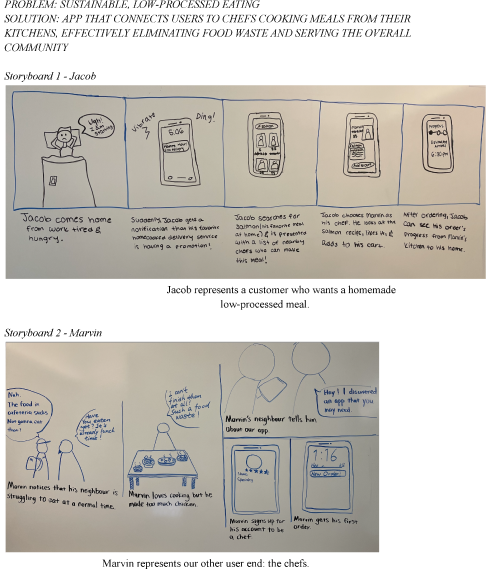 PROBLEM: SUSTAINABLE, LOW-PROCESSED EATING
SOLUTION: APP THAT CONNECTS USERS TO CHEFS COOKING MEALS FROM THEIR
KITCHENS, EFFECTIVELY ELIMINATING FOOD WASTE AND SERVING THE OVERALL
COMMUNITY
Storyboard 1 - Jacob
Ugh!
I am
Vibrate
Ding!
5:06
6:30 PM
Jacob comes home
from work tired &
hungry.
Suddenly, Jacob gets a
notification that his favorite
homecooked delivery service
is having a promotion!
Jacob searches for
Salmon (his favorite meal
at home) & is presented
with a list of nearby
chefs who can make
this meal!
Jacob chooses Marvin as
his chef. He looks at the
salmon recipe, likes it &
adds to his cart.
After ordering, Jacob
can see his order's
progress from Marvin's
kitchen to his home.
Jacob represents a customer who wants a homemade
low-processed meal.
Storyboard 2 - Marvin
Nah.
The food in
cafeteria sucks
Not gonna eat
them!
Have
you eaten
yet? It's
already lunch
time!
Marvin notices that his neighbour is
struggling to eat at a normal time.
I can't
finish them
at all!
Such a food
waste!
Marvin loves cooking but he
made too much chicken.
Hey! I discovered
an app that you
may need.
Marvin's neighbour tells him
about our app.
Marvin signs up for
his account to be
a chef.
1:16
New Order!
Marvin gets his first
order.
Marvin represents our other user end: the chefs.